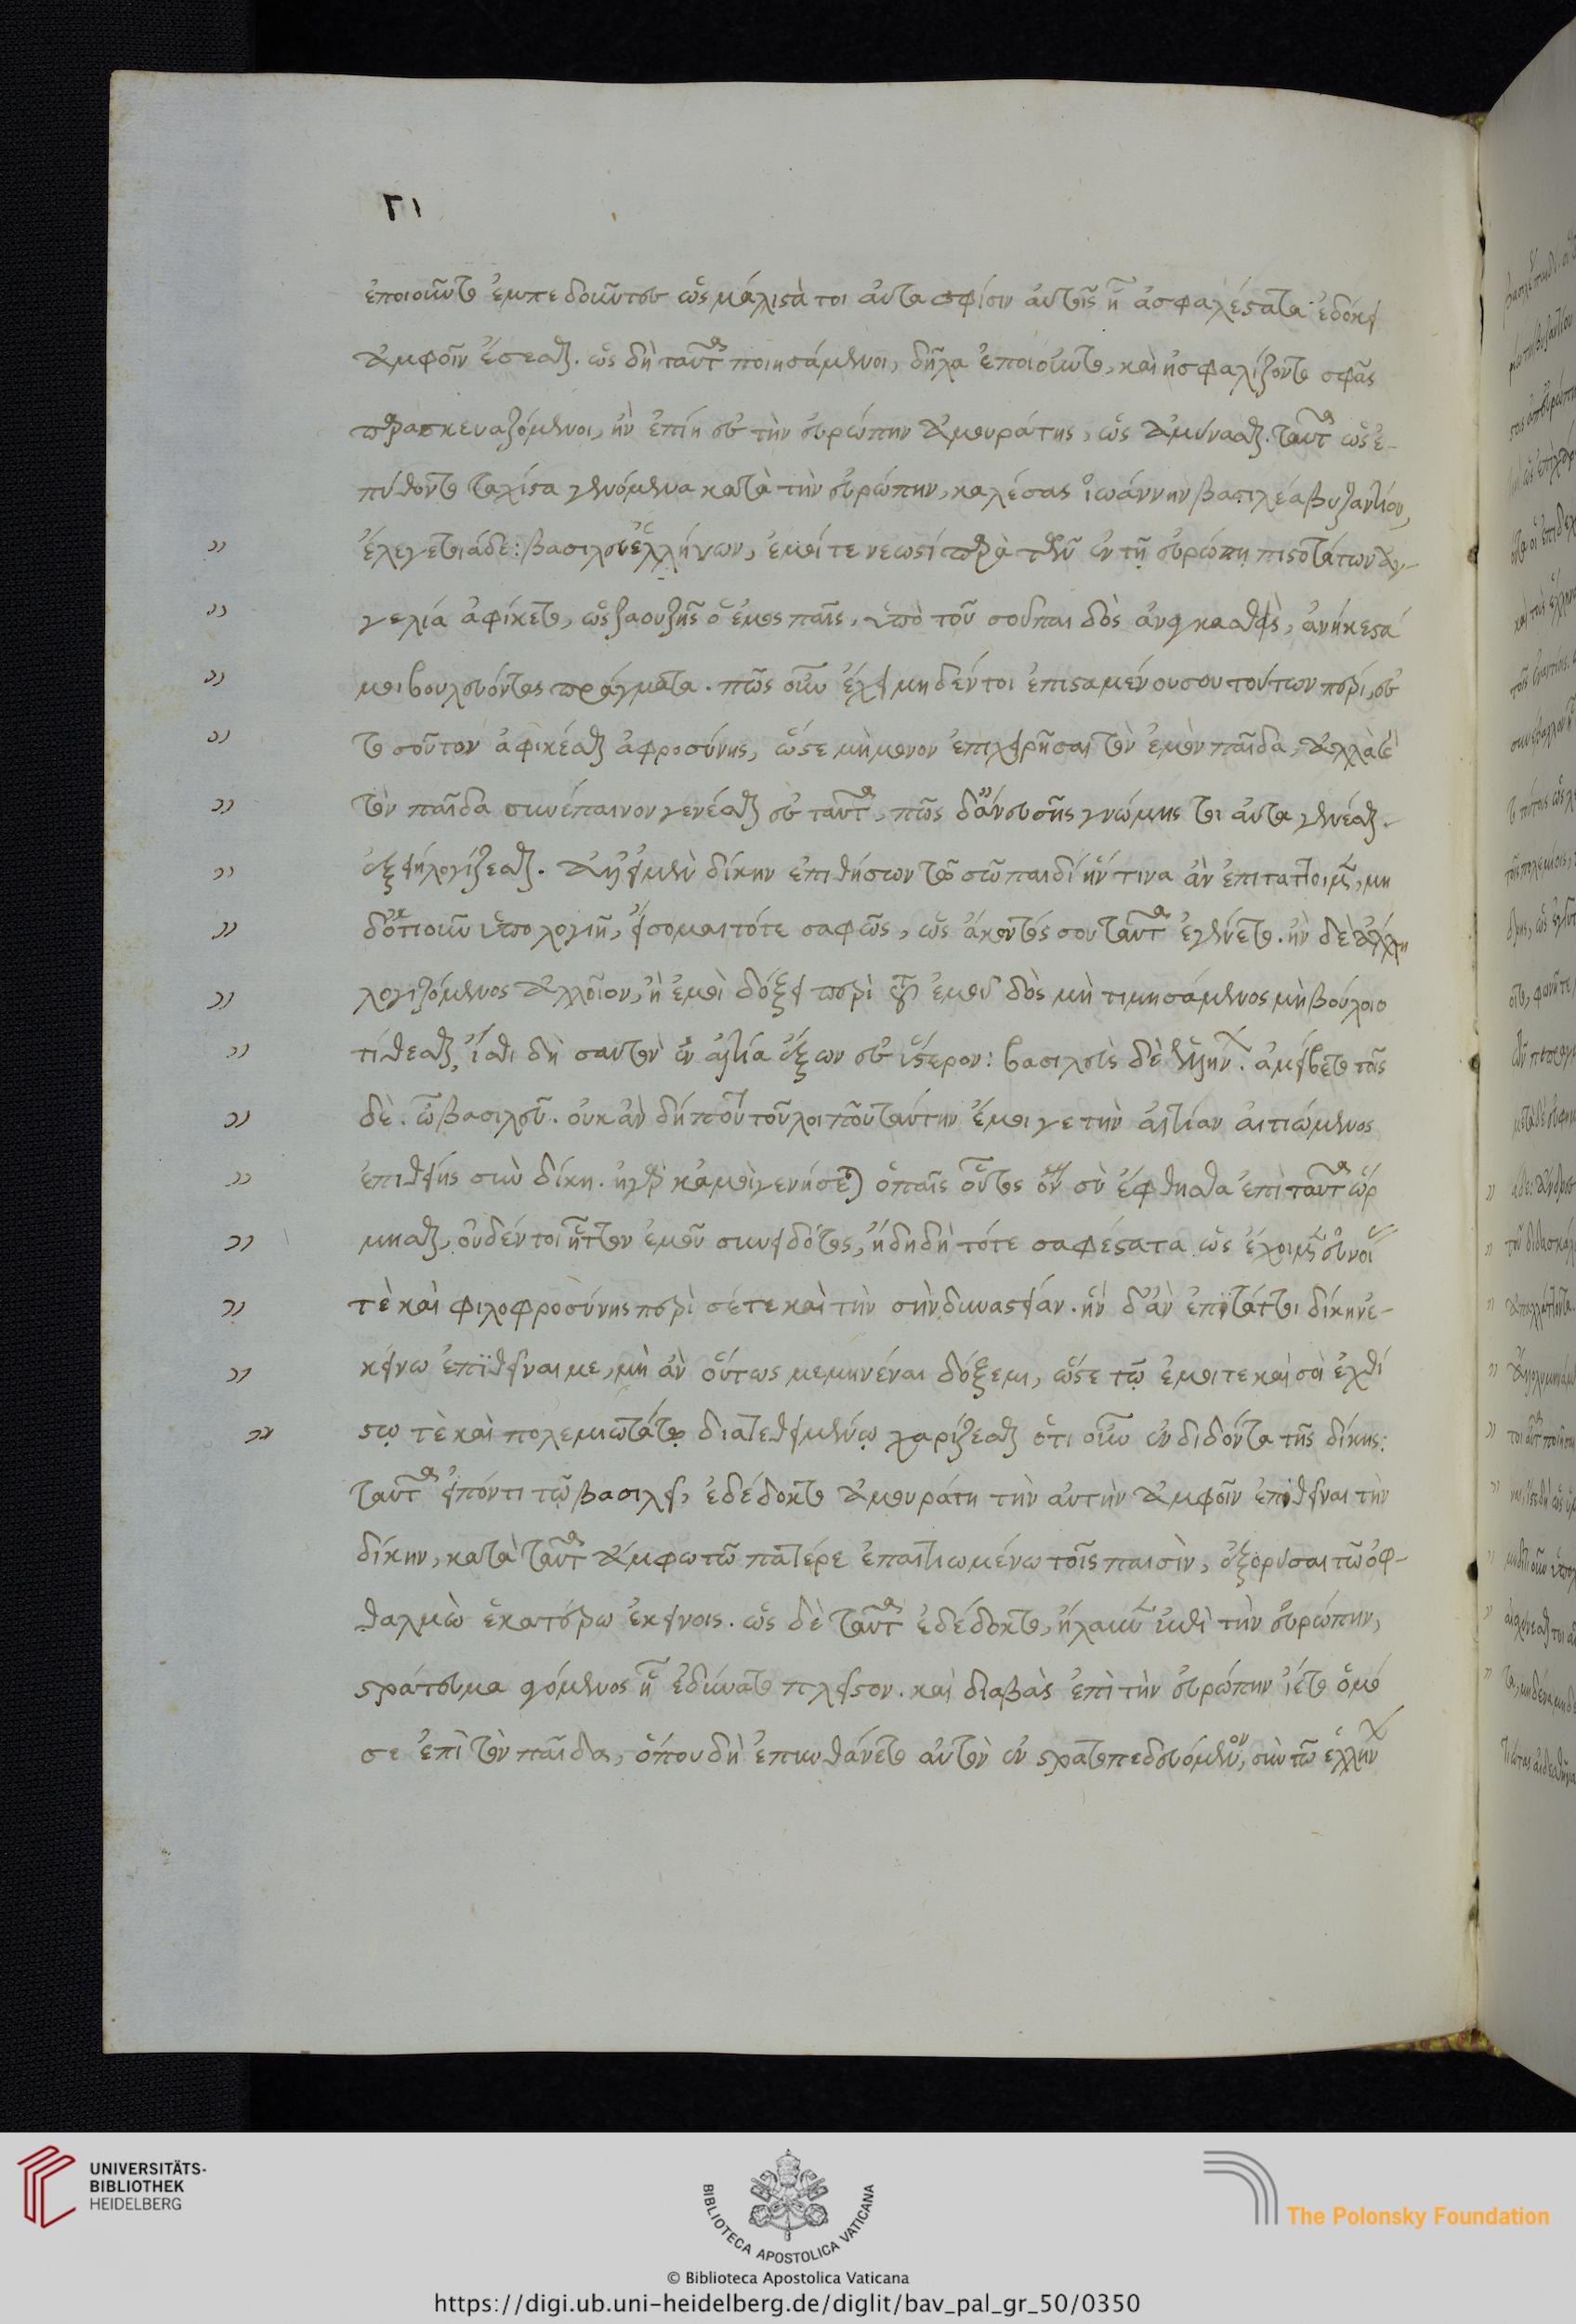 ἐποιοῦντο ἐμπεδοῦντες ὡς μάλιστά τοι αὐτά σφίσιν αὐτοῖς ᾗ ἀσφαλέστατα ἐδόκει
ἀμφοῖν ἔσεσθαι. ὡς δὴ ταῦτα ποιησάμενοι, δῆλα ἐποιοῦντο, καὶ ἠσφαλίζοντο σφᾶς
παρασκευαζόμενοι, ἢν ἐπίῃ ἐς τὴν εὐρώπην ἀμουράτης, ὡς ἀμύνασθαι. ταῦτα ὡς ἐ-
πύθοντο τάχιστα γενόμενα κατὰ τὴν εὐρώπην, καλέσας ἰωάννην βασιλέα βυζαντίου,
ἔλεγε τοιάδε: βασιλεῦ ἑλλήνων, ἐμοί τε νεωστὶ παρὰ τῶν ἐν τῇ εὐρώπῃ πιστοτάτων ἀγ-
γελία ἀφίκετο, ὡς σαουζῆς ὁ ἐμὸς παῖς, ὑπὸ τοῦ σοῦ παιδὸς ἀναγκασθεὶς, ἀνήκεστά
μοι βουλεύοντες πράγματα. πῶς οὖν ἔχει μηδέν τοι ἐπισταμένου σου τούτων πέρι, ἐς
τοσοῦτον ἀφικέσθαι ἀφροσύνης, ὥστε μὴ μόνον ἐπιχειρῆσαι τὸν ἐμὸν παῖδα, ἀλλὰ καὶ
τὸν παῖδα συνέπαινον γενέσθαι ἐς ταῦτα, πῶς δ' ἄνευ σῆς γνώμης τοι αὐτὰ γενέσθαι
ἔξει λογίζεσθαι. ἀλλ' εἰ μὲν δίκην ἐπιθήσων τῷ σῷ παιδὶ ἥν τινα ἂν ἐπιτάττοιμι, μη
δοτιοῦν ὑπολογιῇ, εἴσομαι τότε σαφῶς, ὡς ἄκοντός σου ταῦτα ἐγένετο. ἢν δὲ ἄλλῃ
λογιζόμενος ἀλλοῖον, ἢ ἐμοὶ δόξει περὶ τοῦ ἐμοῦ δὸς μὴ τιμησάμενος μὴ βούλοιο
τίθεσθαι, ἴσθι δὴ σαυτὸν ἐν αἰτίᾳ ἕξων ἐς ὕστερον: βασιλεὺς δὲ ἑλλήνων. ἀμείβετο τοῖς
δὲ. ὦ βασιλεῦ. οὐκ ἂν δήπου τοῦ λοιποῦ ταύτην ἔμοιγε τὴν αἰτίαν αἰτιώμενος
ἐπιθείης σὺν δίκῃ. εἰ γὰρ κἀμοὶ γενήσεται ὁ παῖς οὗτος ὃν σὺ ἔφησθα ἐπὶ ταῦτα ὡρ
μῆσθαι, οὐδέν τοι ἧττον ἐμοῦ συνειδότος, ᾔδη δὴ τότε σαφέστατα ὡς ἔχοιμι εὐνοί
τὲ καὶ φιλοφροσύνης περὶ σέ τε καὶ τὴν σὴν δυναστείαν. ἣν δ' ἂν ἐπιτάττοι δίκην ἐ-
κείνῳ ἐπιθεῖναι με, μὴ ἂν οὕτως μεμηνέναι δόξαιμι, ὥστε τῷ ἐμοί τε καὶ σοὶ ἐχθί
στῳ τὲ καὶ πολεμιωτάτῳ διατεθειμένῳ χαρίζεσθαι ὅτι οὖν ἐνδιδόντα τῆς δίκης:
ταῦτα εἰπόντι τῷ βασιλεῖ, ἐδέδοκτο ἀμουράτῃ τὴν αὐτὴν ἀμφοῖν ἐπιθεῖναι τὴν
δίκην, κατὰ ταῦτα ἄμφω τὼ πατέρε ἐπαιτιωμένω τοῖς παισὶν, ἐξορύσαι τὼ ὀφ-
θαλμὼ ἑκατέρω ἐκείνοις. ὡς δὲ ταῦτα ἐδέδοκτο, ἤλαυνεν ἐπὶ τὴν εὐρώπην,
στράτευμα ἀγόμενος ᾗ ἐδύνατο πλεῖστον. καὶ διαβὰς ἐπὶ τὴν εὐρώπην ἵετο ὁμό
σε ἐπὶ τὸν παῖδα, ὅπου δὴ ἐπυνθάνετο αὐτὸν ἐν στρατοπεδευόμενον, σὺν τῷ ἑλλήνων
UNIVERSITÄTS-
BIBLIOTHEK
HEIDELBERG
BIBLIOTECA APOSTOLICA VATICANA
The Polonsky Foundation
© Biblioteca Apostolica Vaticana
https://digi.ub.uni-heidelberg.de/diglit/bav_pal_gr_50/0350